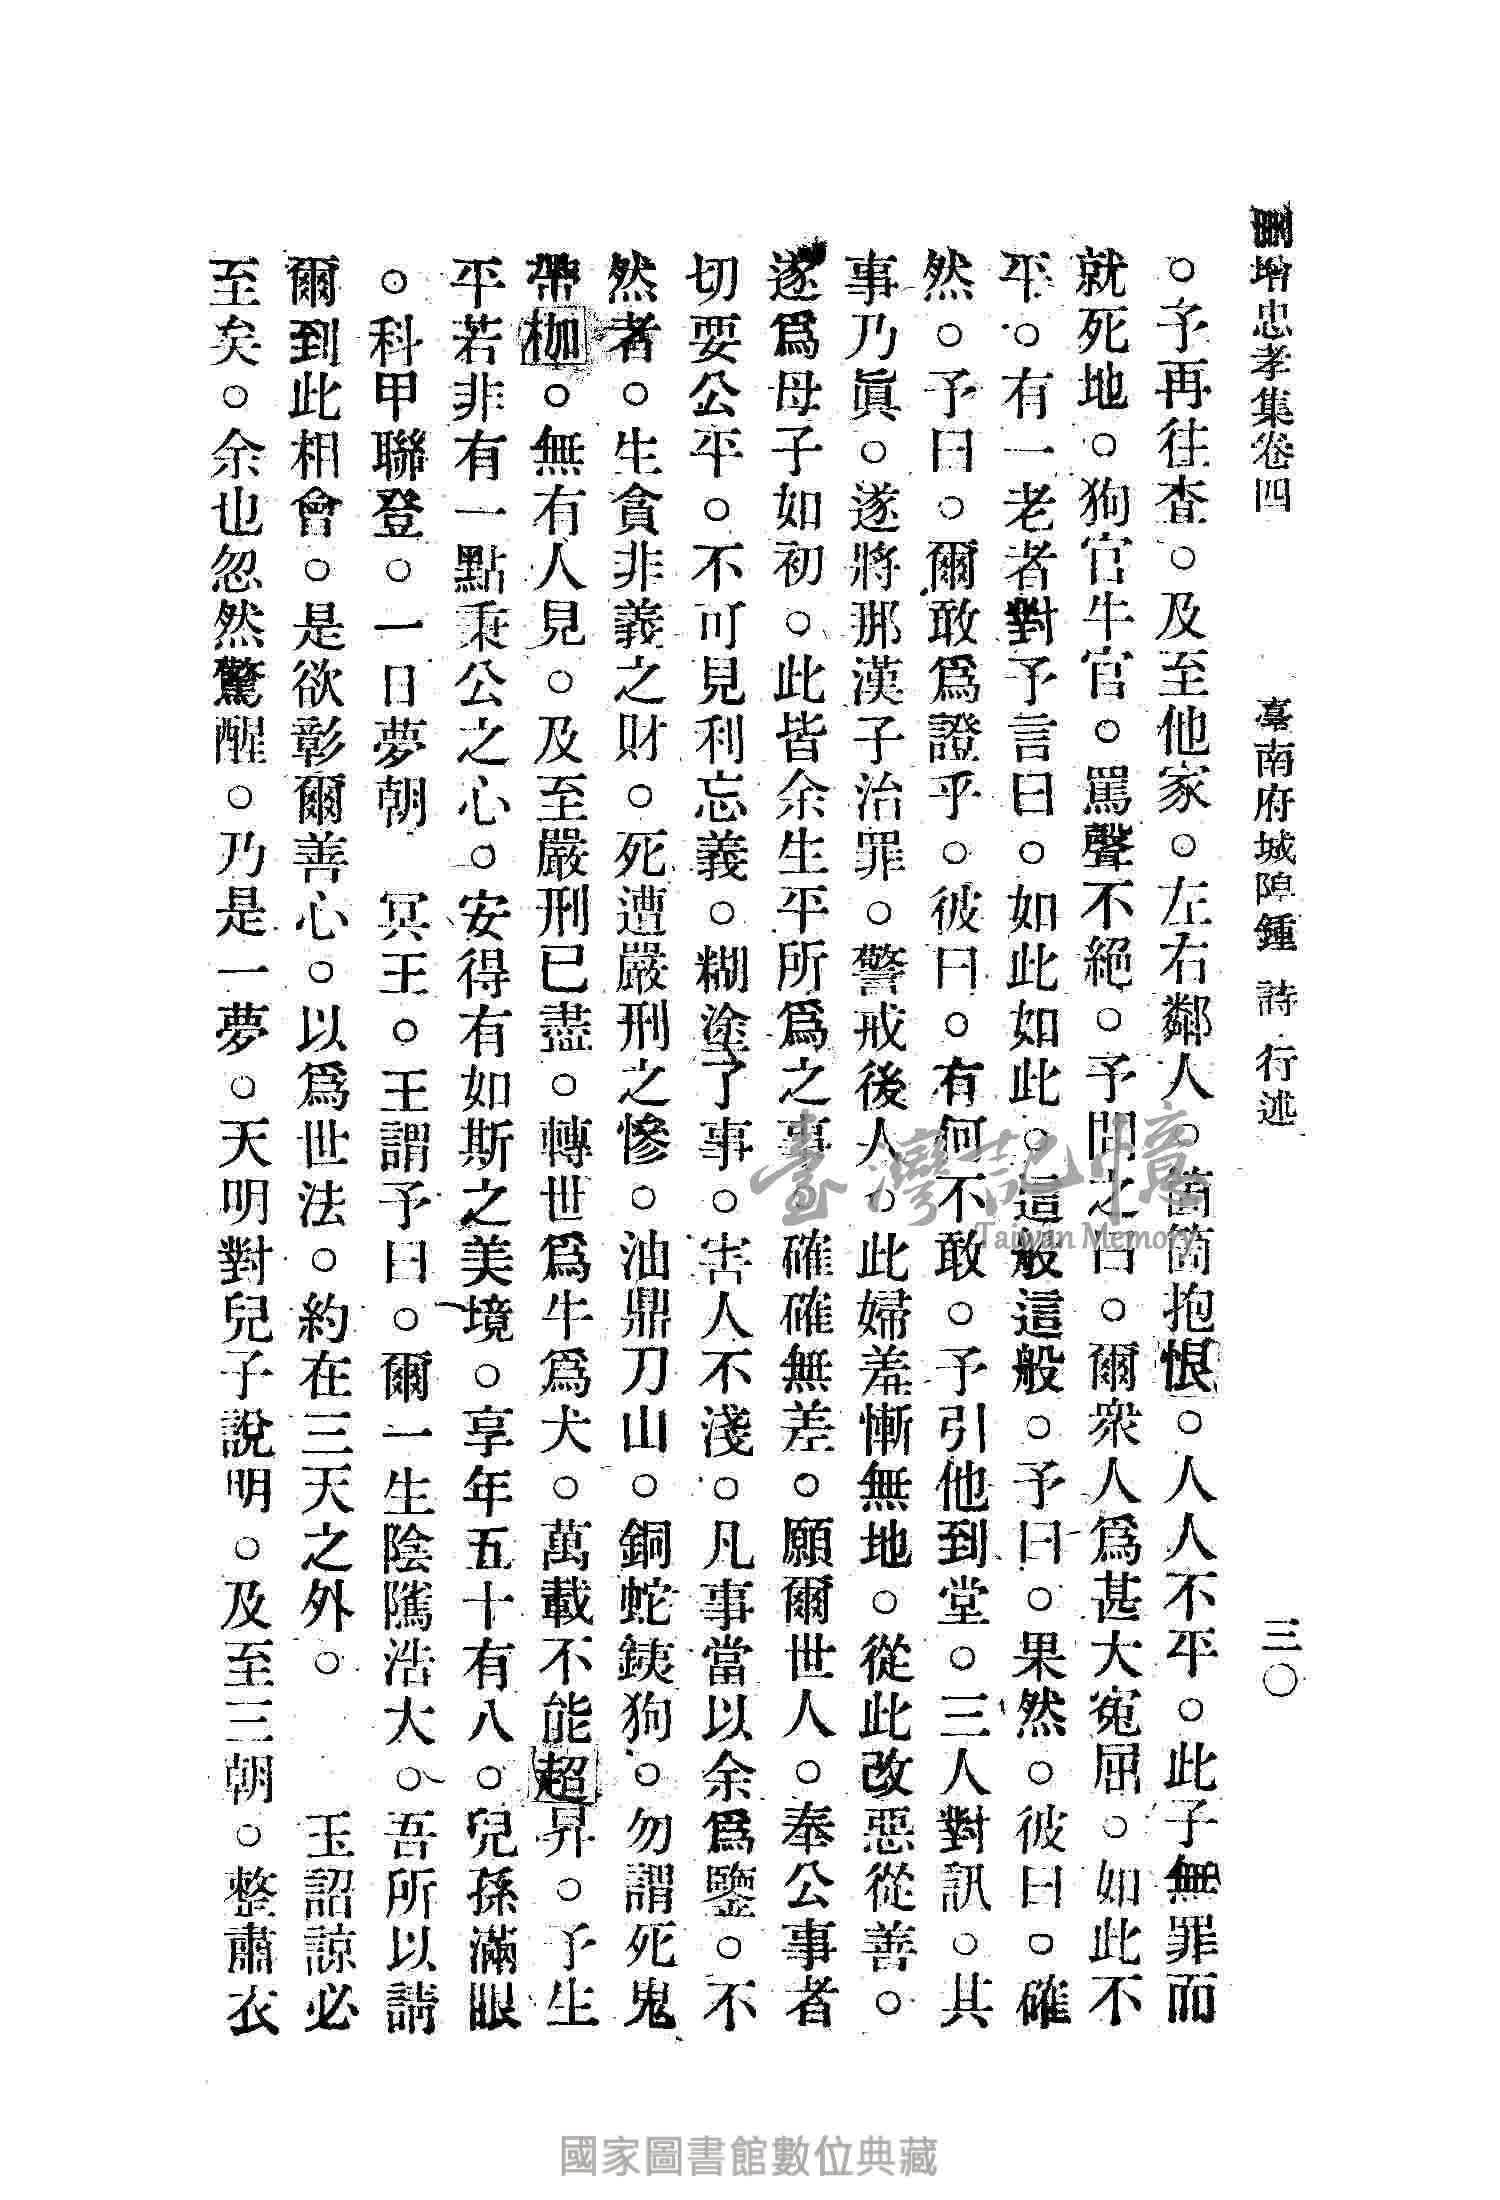 增忠孝集卷四　臺南府城隍鍾　詩　行述　三〇
。予再往査。及至他家。左右鄰人。箇箇抱恨。人人不平。此子無罪而
就死地。狗官牛官。罵聲不絕。予問之曰。爾衆人爲甚大寃屈。如此不
平。有一老者對予言曰。如此如此。這般這般。予曰。果然。彼曰。確
然。予曰。爾敢爲證乎。彼曰。有何不敢。予引他到堂。三人對訊。其
事乃眞。遂將那漢子治罪。警戒後人。此婦羞慚無地。從此改惡從善。
遂爲母子如初。此皆余生平所爲之事。確確無差。願爾世人。奉公事者
切要公平。不可見利忘義。糊塗了事。害人不淺。凡事當以余爲鑒。不
然者。生貪非義之財。死遭嚴刑之慘。油鼎刀山。銅蛇鐵狗。勿謂死鬼
帶枷。無有人見。及至嚴刑已盡。轉世爲牛爲犬。萬載不能超昇。予生
平若非有一點秉公之心。安得有如斯之美境。享年五十有八。兒孫滿眼
。科甲聯登。一日夢朝　冥王。王謂予曰。爾一生陰隲浩大。吾所以請
爾到此相會。是欲彰爾善心。以爲世法。約在三天之外。　玉詔諒必
至矣。余也忽然驚醒。乃是一夢。天明對兒子說明。及至三朝。整肅衣
臺灣記憶
Taiwan Memory
國家圖書館數位典藏